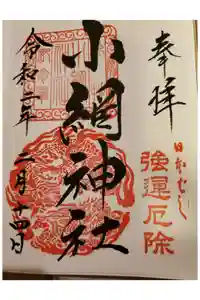 奉拝
日本ばし
強運厄除
小網神社
令和二年
二月十四日